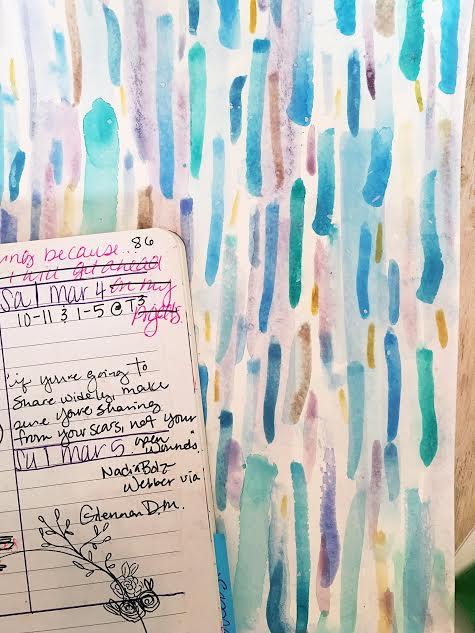 because... 86
Sa | Mar 4 in my
10-11 & 1-5 @ T3
"if you're going to
share widely, make
sure you're sharing
from your scars, not your
open
Su | Mar 5 wounds."
Nadia Bolz
Webber via
Glennan D.M.